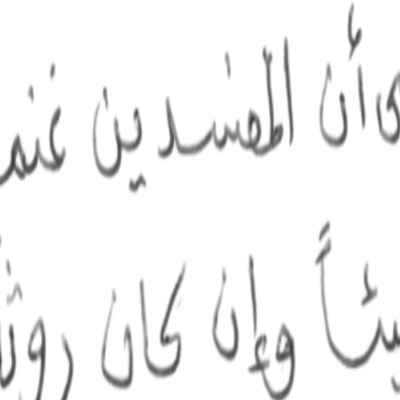 ى أن المفسدين غنم
يئاً وإن كان روثا